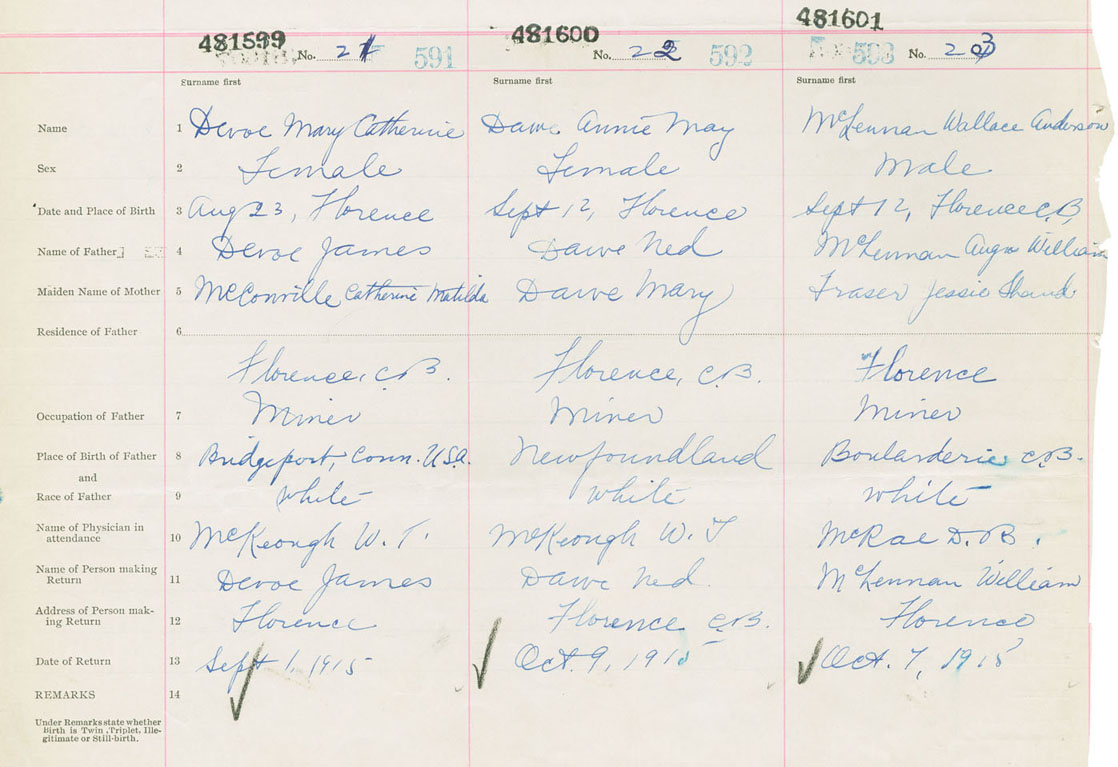 481599 481600 481601
No. 21 591 No. 22 592 593 No. 203
Surname first Surname first Surname first
Name 1 Devoe Mary Catherine Dawe Annie May McLennan Wallace Anderson
Sex 2 Female Female Male
Date and Place of Birth 3 Aug 23, Florence Sept 12, Florence Sept 12, Florence C.B.
Name of Father 4 Devoe James Dawe Ned McLennan Angus William
Maiden Name of Mother 5 McConville Catherine Matilda Dawe Mary Fraser Jessie Shand
Residence of Father 6
Florence, C.B. Florence, C.B. Florence
Occupation of Father 7 Miner Miner Miner
Place of Birth of Father 8 Bridgeport, Conn. U.S.A. Newfoundland Boularderie C.B.
and
Race of Father 9 White White White
Name of Physician in
attendance 10 McKeough W. T. McKeough W. T McRae D. B.
Name of Person making
Return 11 Devoe James Dawe Ned. McLennan William
Address of Person mak-
ing Return 12 Florence Florence C.B. Florence,
Date of Return 13 Sept 1, 1915 Oct. 9, 1915 Oct. 7, 1915
REMARKS 14
Under Remarks state whether
Birth is Twin, Triplet, Ille-
gitimate or Still-birth.